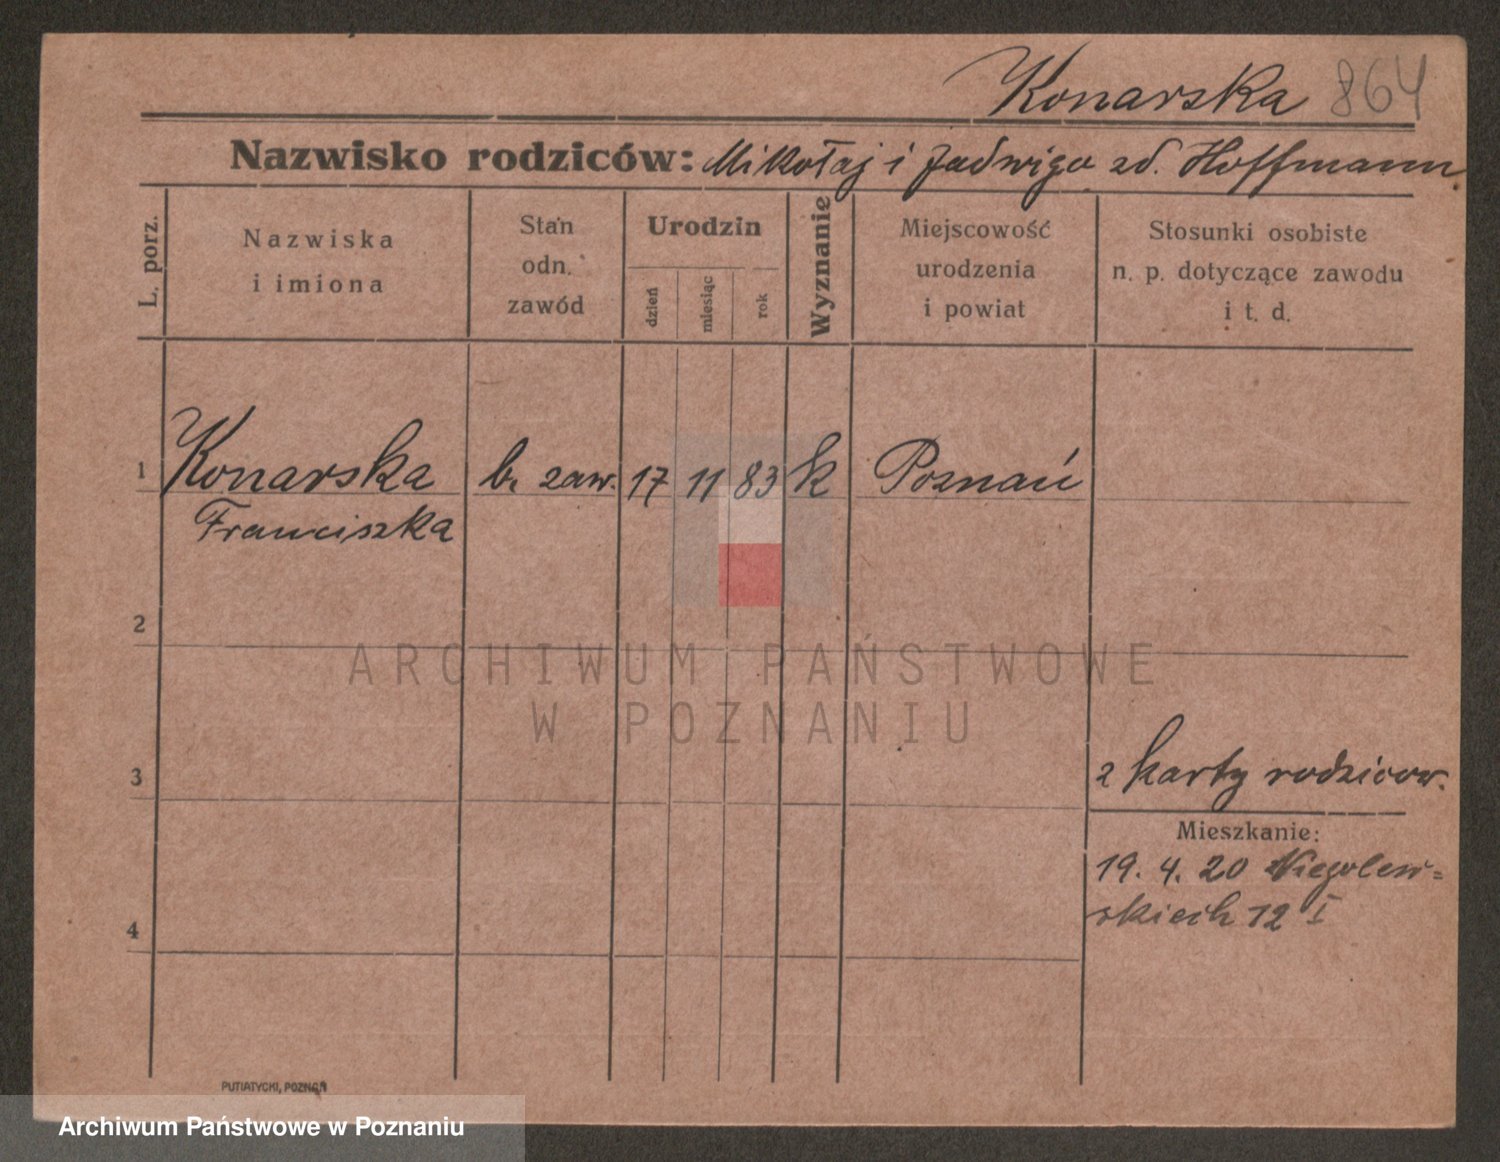 Konarska 864
Nazwisko rodziców: Mikołaj i Jadwiga zd. Hoffmann
L. porz.
Nazwiska
i imiona
Stan
odn.
zawód
Urodzin
dzień
miesiąc
rok
Wyznanie
Miejscowość
urodzenia
i powiat
Stosunki osobiste
n. p. dotyczące zawodu
i t. d.
1 Konarska b. zaw. 17 11 83 k Poznań
Franciszka
2
ARCHIWUM PAŃSTWOWE
W POZNANIU
3
z karty rodzicow.
Mieszkanie:
19. 4. 20 Niegolew=
skich 12 I
4
PUTIATYCKI, POZNAŃ
Archiwum Państwowe w Poznaniu